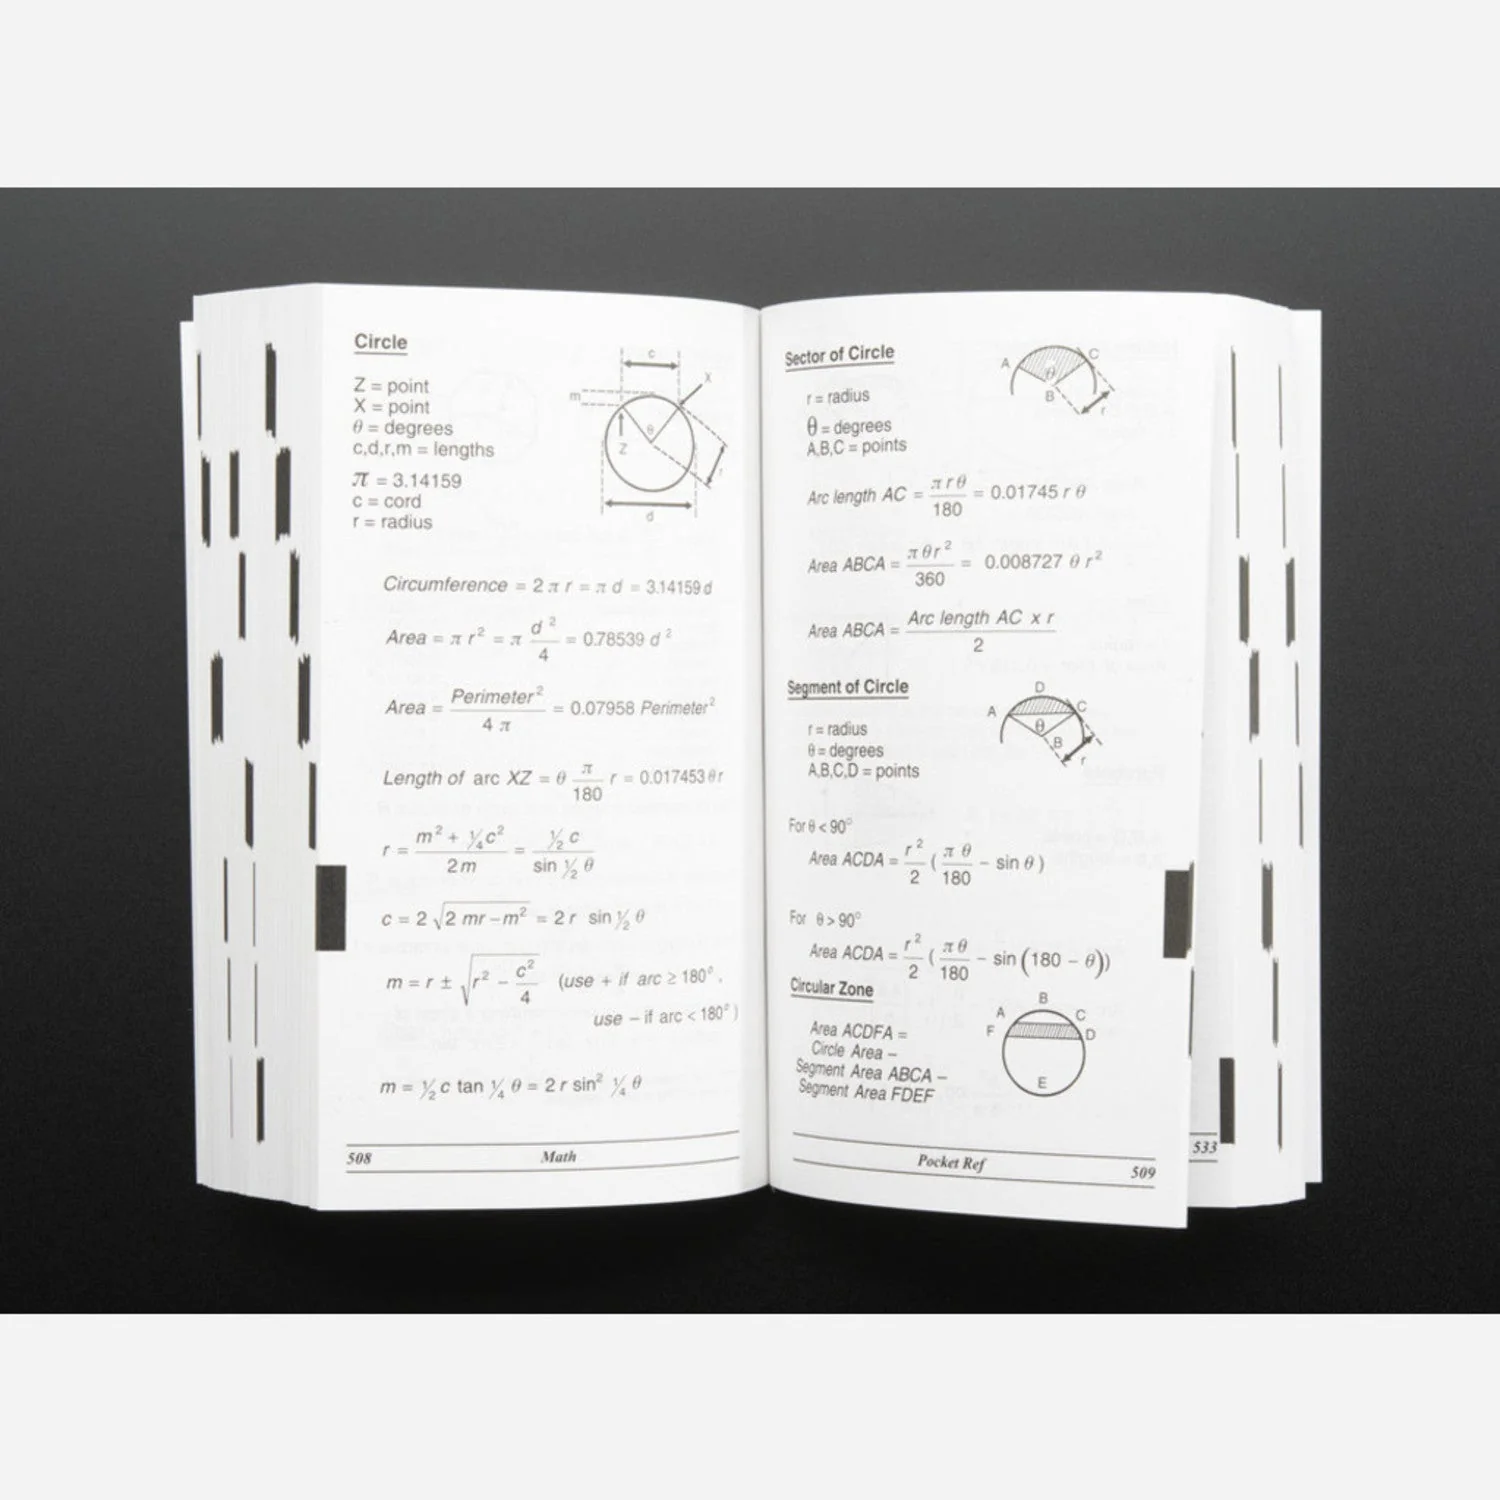 Circle
Z = point
X = point
θ = degrees
c,d,r,m = lengths
π = 3.14159
c = cord
r = radius
c
m
X
θ
Z
r
d
Circumference = 2 π r = π d = 3.14159 d
Area = π r² = π d²/4 = 0.78539 d²
Area = Perimeter²/4 π = 0.07958 Perimeter²
Length of arc XZ = θ π/180 r = 0.017453 θ r
r = (m² + ¼ c²)/2 m = ½ c/sin ½ θ
c = 2 √(2 mr – m²) = 2 r sin ½ θ
m = r ± √(r² – c²/4) (use + if arc ≥ 180°,
use – if arc < 180°)
m = ½ c tan ¼ θ = 2 r sin² ¼ θ
508 Math
Sector of Circle
r = radius
θ = degrees
A,B,C = points
A
C
θ
B
r
Arc length AC = π r θ/180 = 0.01745 r θ
Area ABCA = π θ r²/360 = 0.008727 θ r²
Area ABCA = Arc length AC x r/2
Segment of Circle
r = radius
θ = degrees
A,B,C,D = points
D
A
C
θ
B
r
For θ < 90°
Area ACDA = r²/2 ( π θ/180 – sin θ )
For θ > 90°
Area ACDA = r²/2 ( π θ/180 – sin (180 – θ))
Circular Zone
Area ACDFA =
Circle Area –
Segment Area ABCA –
Segment Area FDEF
B
A
C
F
D
E
Pocket Ref 509
533